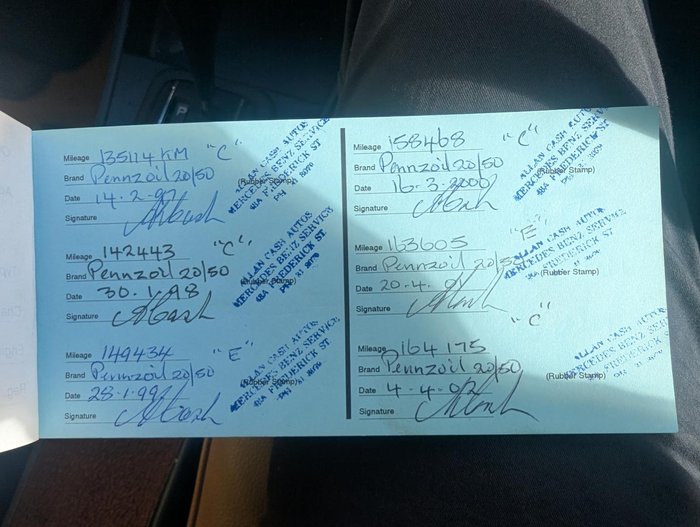 Mileage 135114 KM "C"
Brand Pennzoil 20/50
(Rubber Stamp)
Date 14.2.97
Signature
ALLAN CASH AUTOS
MERCEDES BENZ SERVICE
48A FREDERICK ST
Mileage 142443 "C"
Brand Pennzoil 20/50
Date 30.1.98
Signature
ALLAN CASH AUTOS
MERCEDES BENZ SERVICE
48A FREDERICK ST
Mileage 149434 "E"
Brand Pennzoil 20/50
(Rubber Stamp)
Date 28.1.99
Signature
ALLAN CASH AUTOS
MERCEDES BENZ SERVICE
48A FREDERICK ST
Mileage 158468 "C"
Brand Pennzoil 20/50
(Rubber Stamp)
Date 16.3.2000
Signature
ALLAN CASH AUTOS
MERCEDES BENZ SERVICE
48A FREDERICK ST
Mileage 163605 "E"
Brand Pennzoil 20/50
(Rubber Stamp)
Date 20.4.01
Signature
ALLAN CASH AUTOS
MERCEDES BENZ SERVICE
48A FREDERICK ST
"C"
Mileage 164175
Brand Pennzoil 20/50
(Rubber Stamp)
Date 4.4.02
Signature
ALLAN CASH AUTOS
MERCEDES BENZ
FREDERICK ST